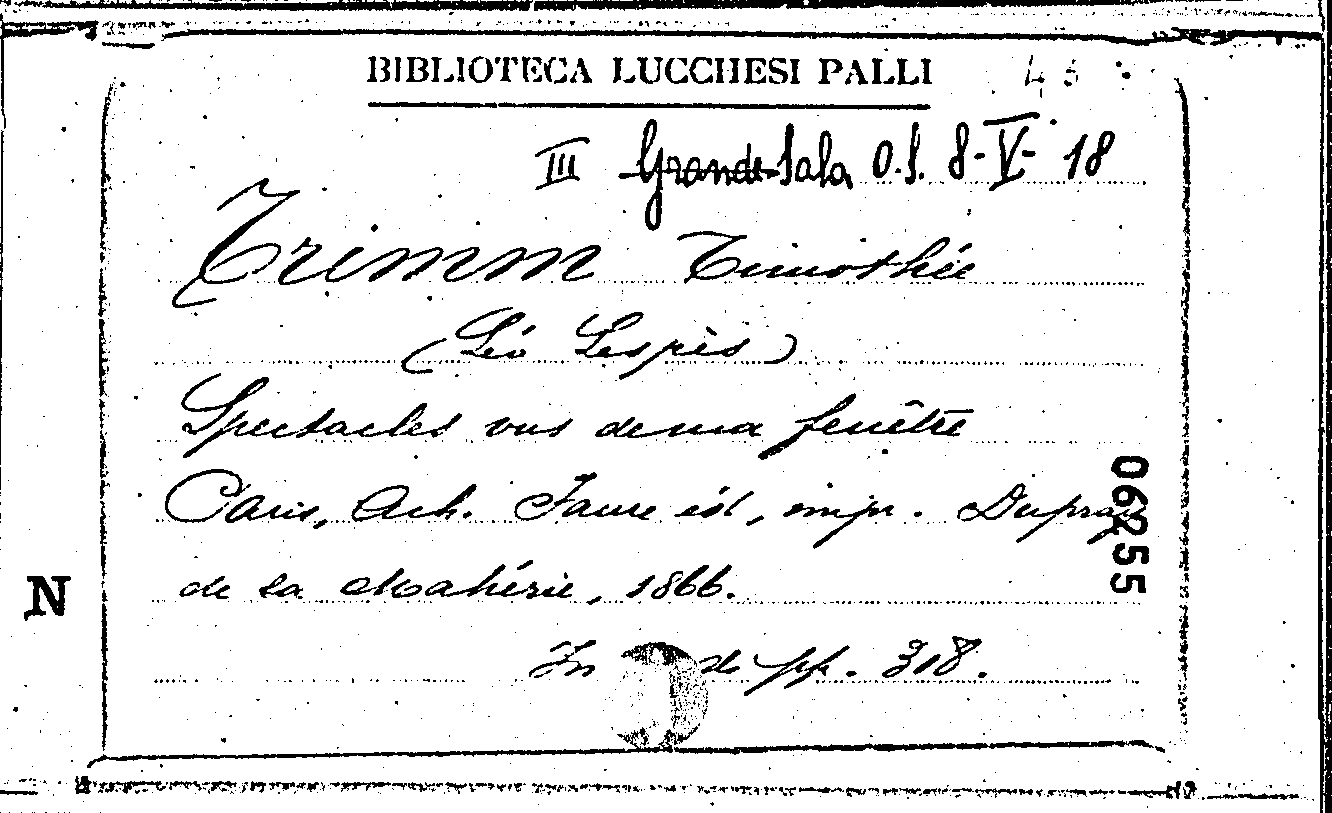 BIBLIOTECA LUCCHESI PALLI 45
III Grande Sala O.S. 8-V-18
Trimm Timothée
(Léo Lespès)
Spectacles vus de ma fenêtre
Paris, Ach. Faure éd, impr. Dupray
de la Mahérie, 1866.
In de pp. 318.
06255
N